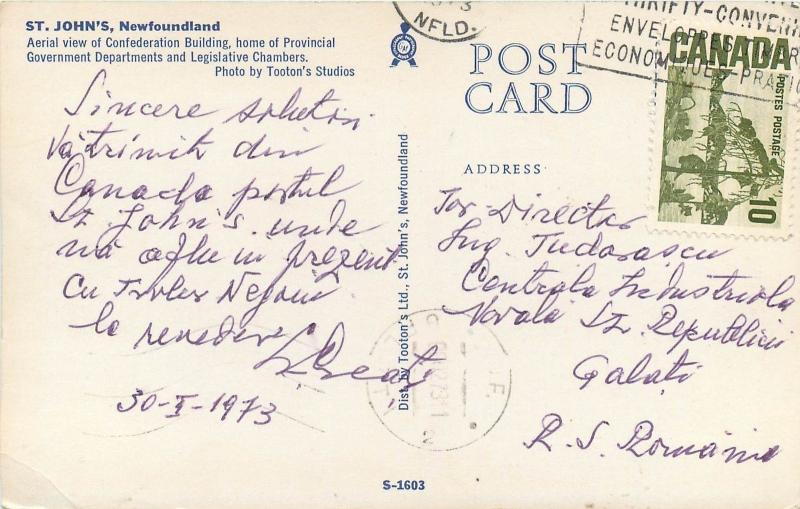 ST. JOHN'S, Newfoundland
Aerial view of Confederation Building, home of Provincial
Government Departments and Legislative Chambers.
Photo by Tooton's Studios
Sincere salutări
Vă trimit din
Canada portul
St. John's unde
mă aflu în prezent
cu Troler Negoiu
la revedere
30-I-1973
Dist. by Tooton's Ltd., St. John's, Newfoundland
S-1603
NFLD.
POST
CARD
ADDRESS
THRIFTY-CONVENI
ENVELOPPES
ECONOMIQUE-PRATIQ
CANADA
POSTES POSTAGE
10
Tov. Director
Ing. Tudorascu
Centrala Industriala
Navala Str. Republicii
Galati
R. S. Romania